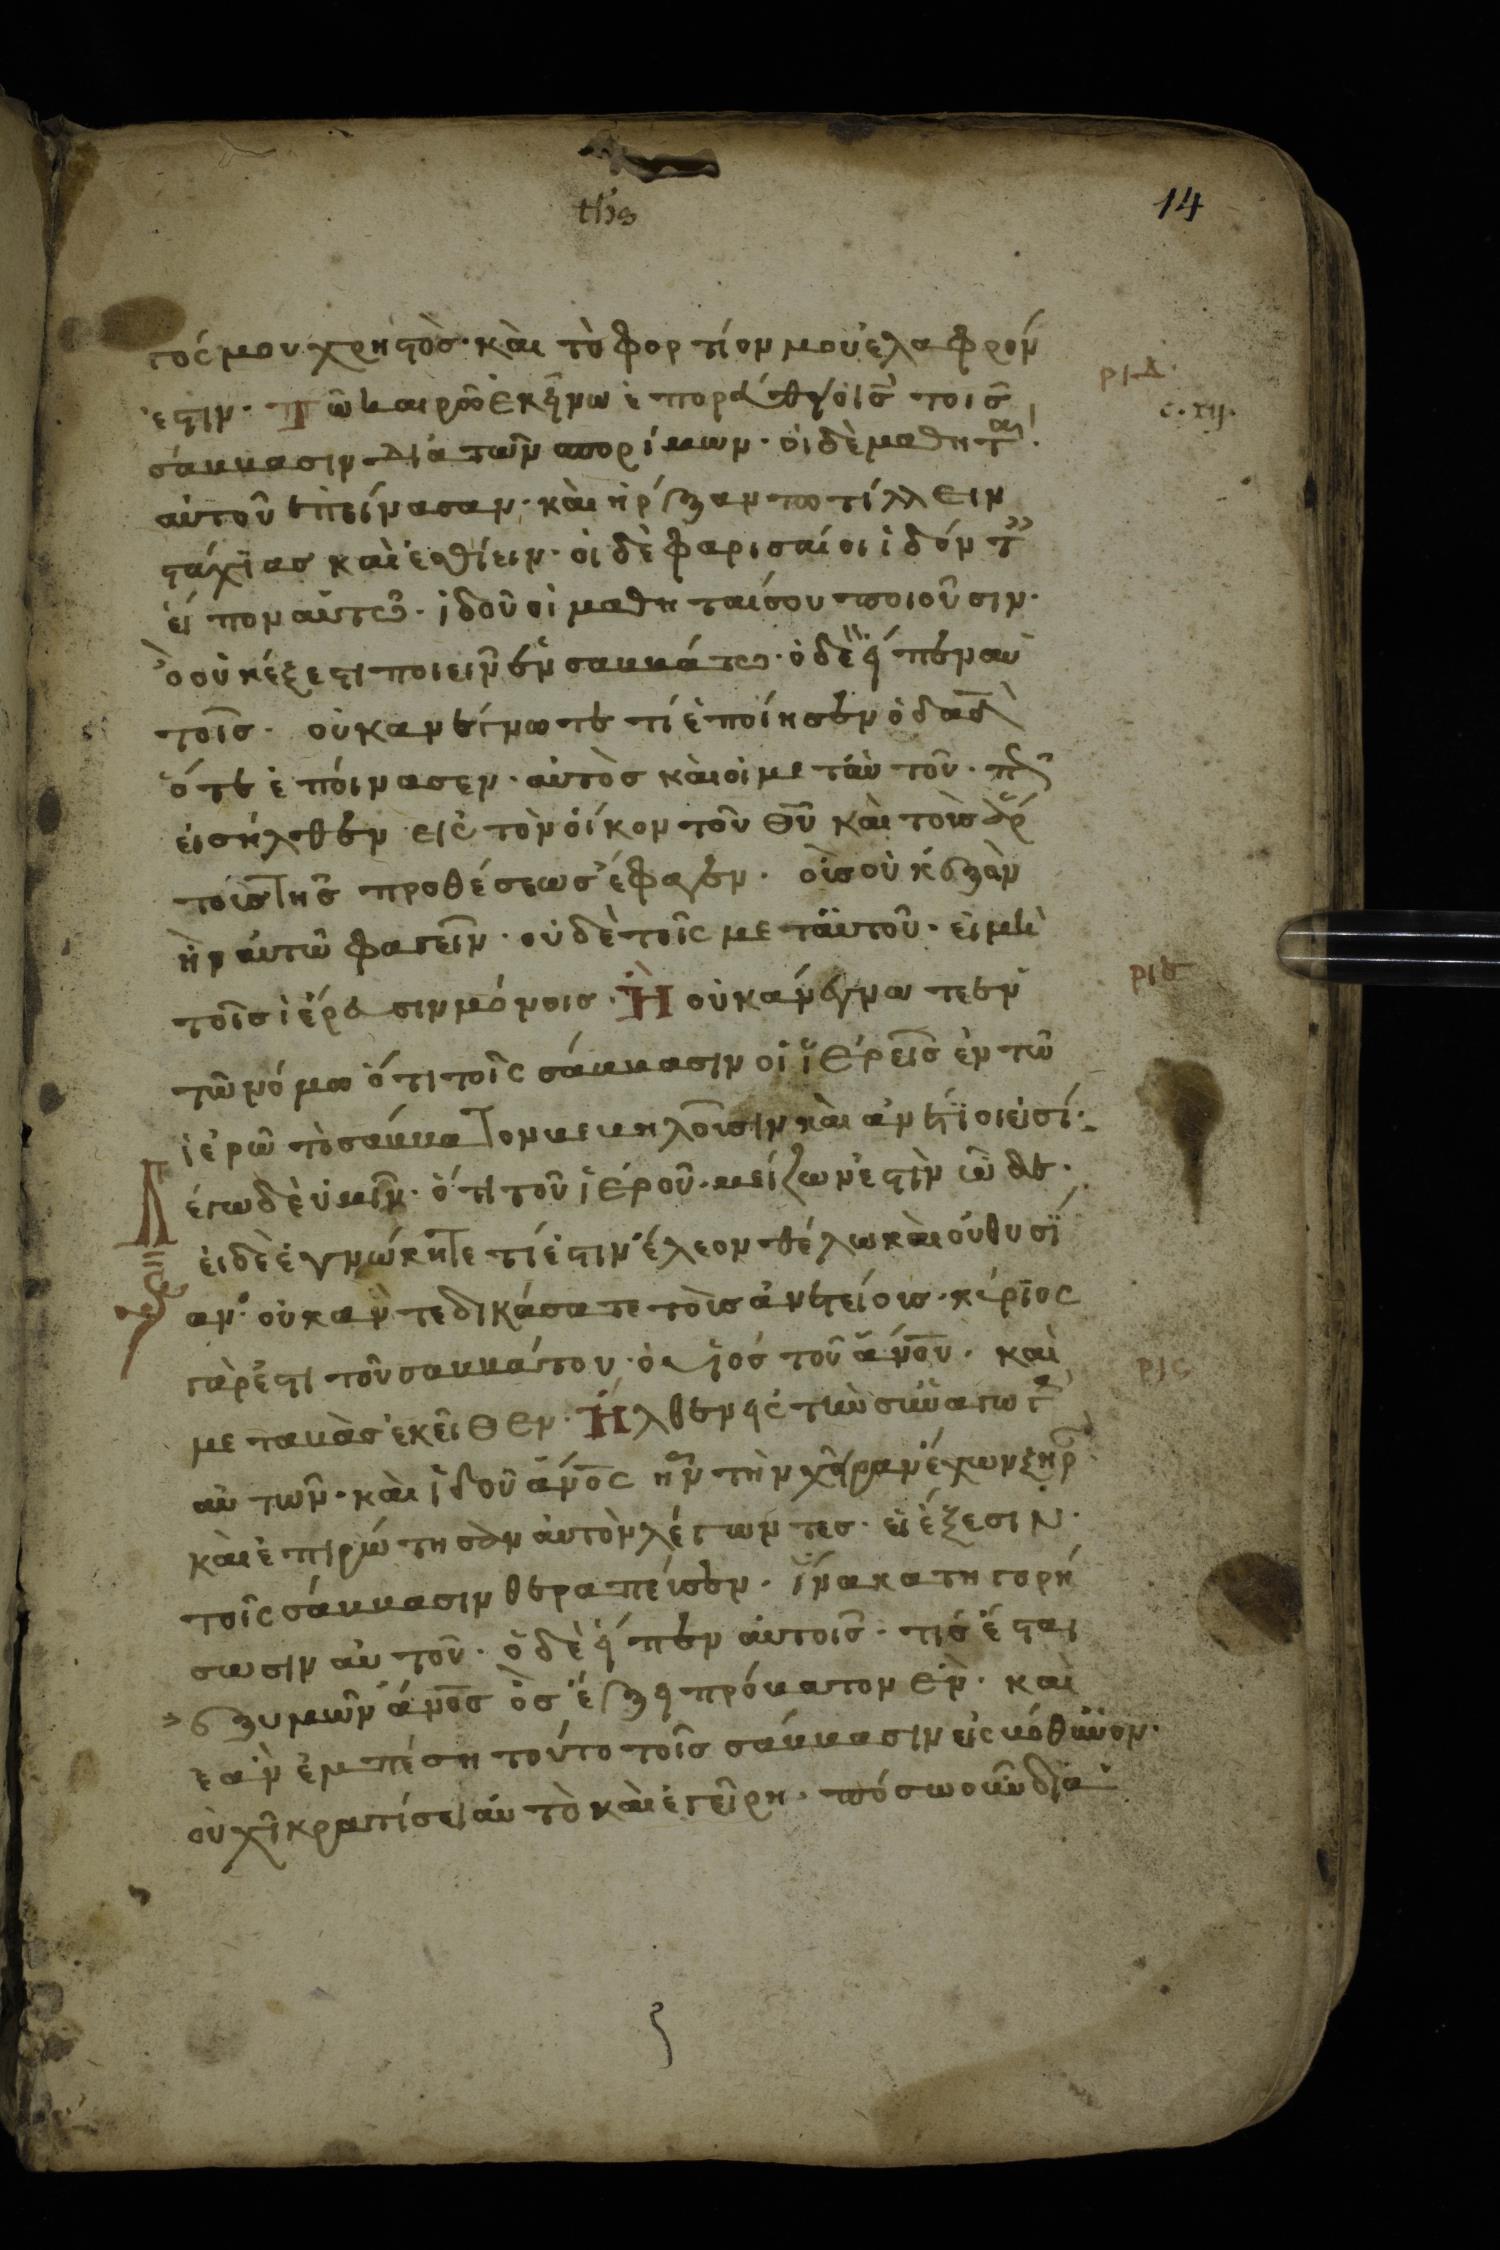 14
γος μου χρηστὸσ· καὶ τὸ φορτίον μου ἐλαφρόν
ριδ
ἐστιν· Τῶ καιρῶ ἐκείνω ἐπορεύθη ὁ ισ τοισ
c. xij.
σάββασιν διὰ τῶν σπορίμων· οἱ δὲ μαθητ
αὐτοῦ ἐπείνασαν· καὶ ἤρξαντο τίλλειν
στάχϊας καὶ ἐσθίειν· οἱ δὲ φαρισαίοι ἰδόντ
εἶπον αὐτῶ· ἰδοῦ οἱ μαθηταί σου ποιοῦσιν·
ὃ οὐκ έξεστι ποιειν ἐν σαββάτω· ὁ δὲ εἶπεν αὐ
τοῖσ· οὐκ ανέγνωτε τί ἐποίησεν ὁ δαδ
ότε ἐπείνασεν· αὐτὸσ καὶ οἱ μετ αὐτοῦ· πῶ
εἰσήλθεν εἰς τὸν οἶκον τοῦ θῦ καὶ τοὺσ ἄρ
τουσ τησ προθέσεωσ έφαγεν· οὓσ οὐκ ἐξὸν
ἦν αὐτῶ φαγεῖν· οὐδὲ τοῖς μετ αὐτοῦ· εἰ μὴ
τοῖσ ἱέρεσιν μόνοισ· Ἢ οὐκ ανέγνωτε ἐν
ριε
τῶ νόμω ότι τοῖς σάββασιν οἱ ἱερεῖσ ἐν τῶ
ἱερῶ τὸ σάββατον βεβηλοῦσιν καὶ ἀνέτϊοι εἰσί·
λέγω δὲ ὑμῖν· ότι τοῦ ἱεροῦ· μείζων ἐστὶν ὧδε·
εἰ δὲ ἐγνώκητε τί ἐστιν ἔλεον θέλω καὶ οὐ θυσϊ
αν· οὐκ ὰν τεδικάσατε τοὺσ ἀνετείουσ· κύρϊος
γὰρ ἐστι τοῦ σαββάτου· ὁ υἱός τοῦ ἀνου· καὶ
ρις
μεταβὰσ ἐκεῖθεν· Ἦλθεν εἰς τὴν συναγωγ
αὐτῶν· καὶ ἰδοῦ ἄνος ἦν τὴν χεῖραν έχων ξηρ
καὶ ἐπιρώτησαν αὐτὸν λέγωντεσ· εἰ έξεσιν·
τοῖς σάββασιν θεραπεύσεν· ἵνα κατηγορή
σωσιν αὐτοῦ· ὁ δὲ εἶπεν αὐτοισ· τίσ ἔσται
ἐξ υμῶν ἄνοσ ὃσ έξει πρόβατον ἐν· καὶ
εὰν ἐμπέση τοῦτο τοῖσ σάββασιν εἰς βόθυνον·
οὐχὶ κρατίσει αὐτὸ καὶ ἐγεῖρη· πόσω οὖν δία